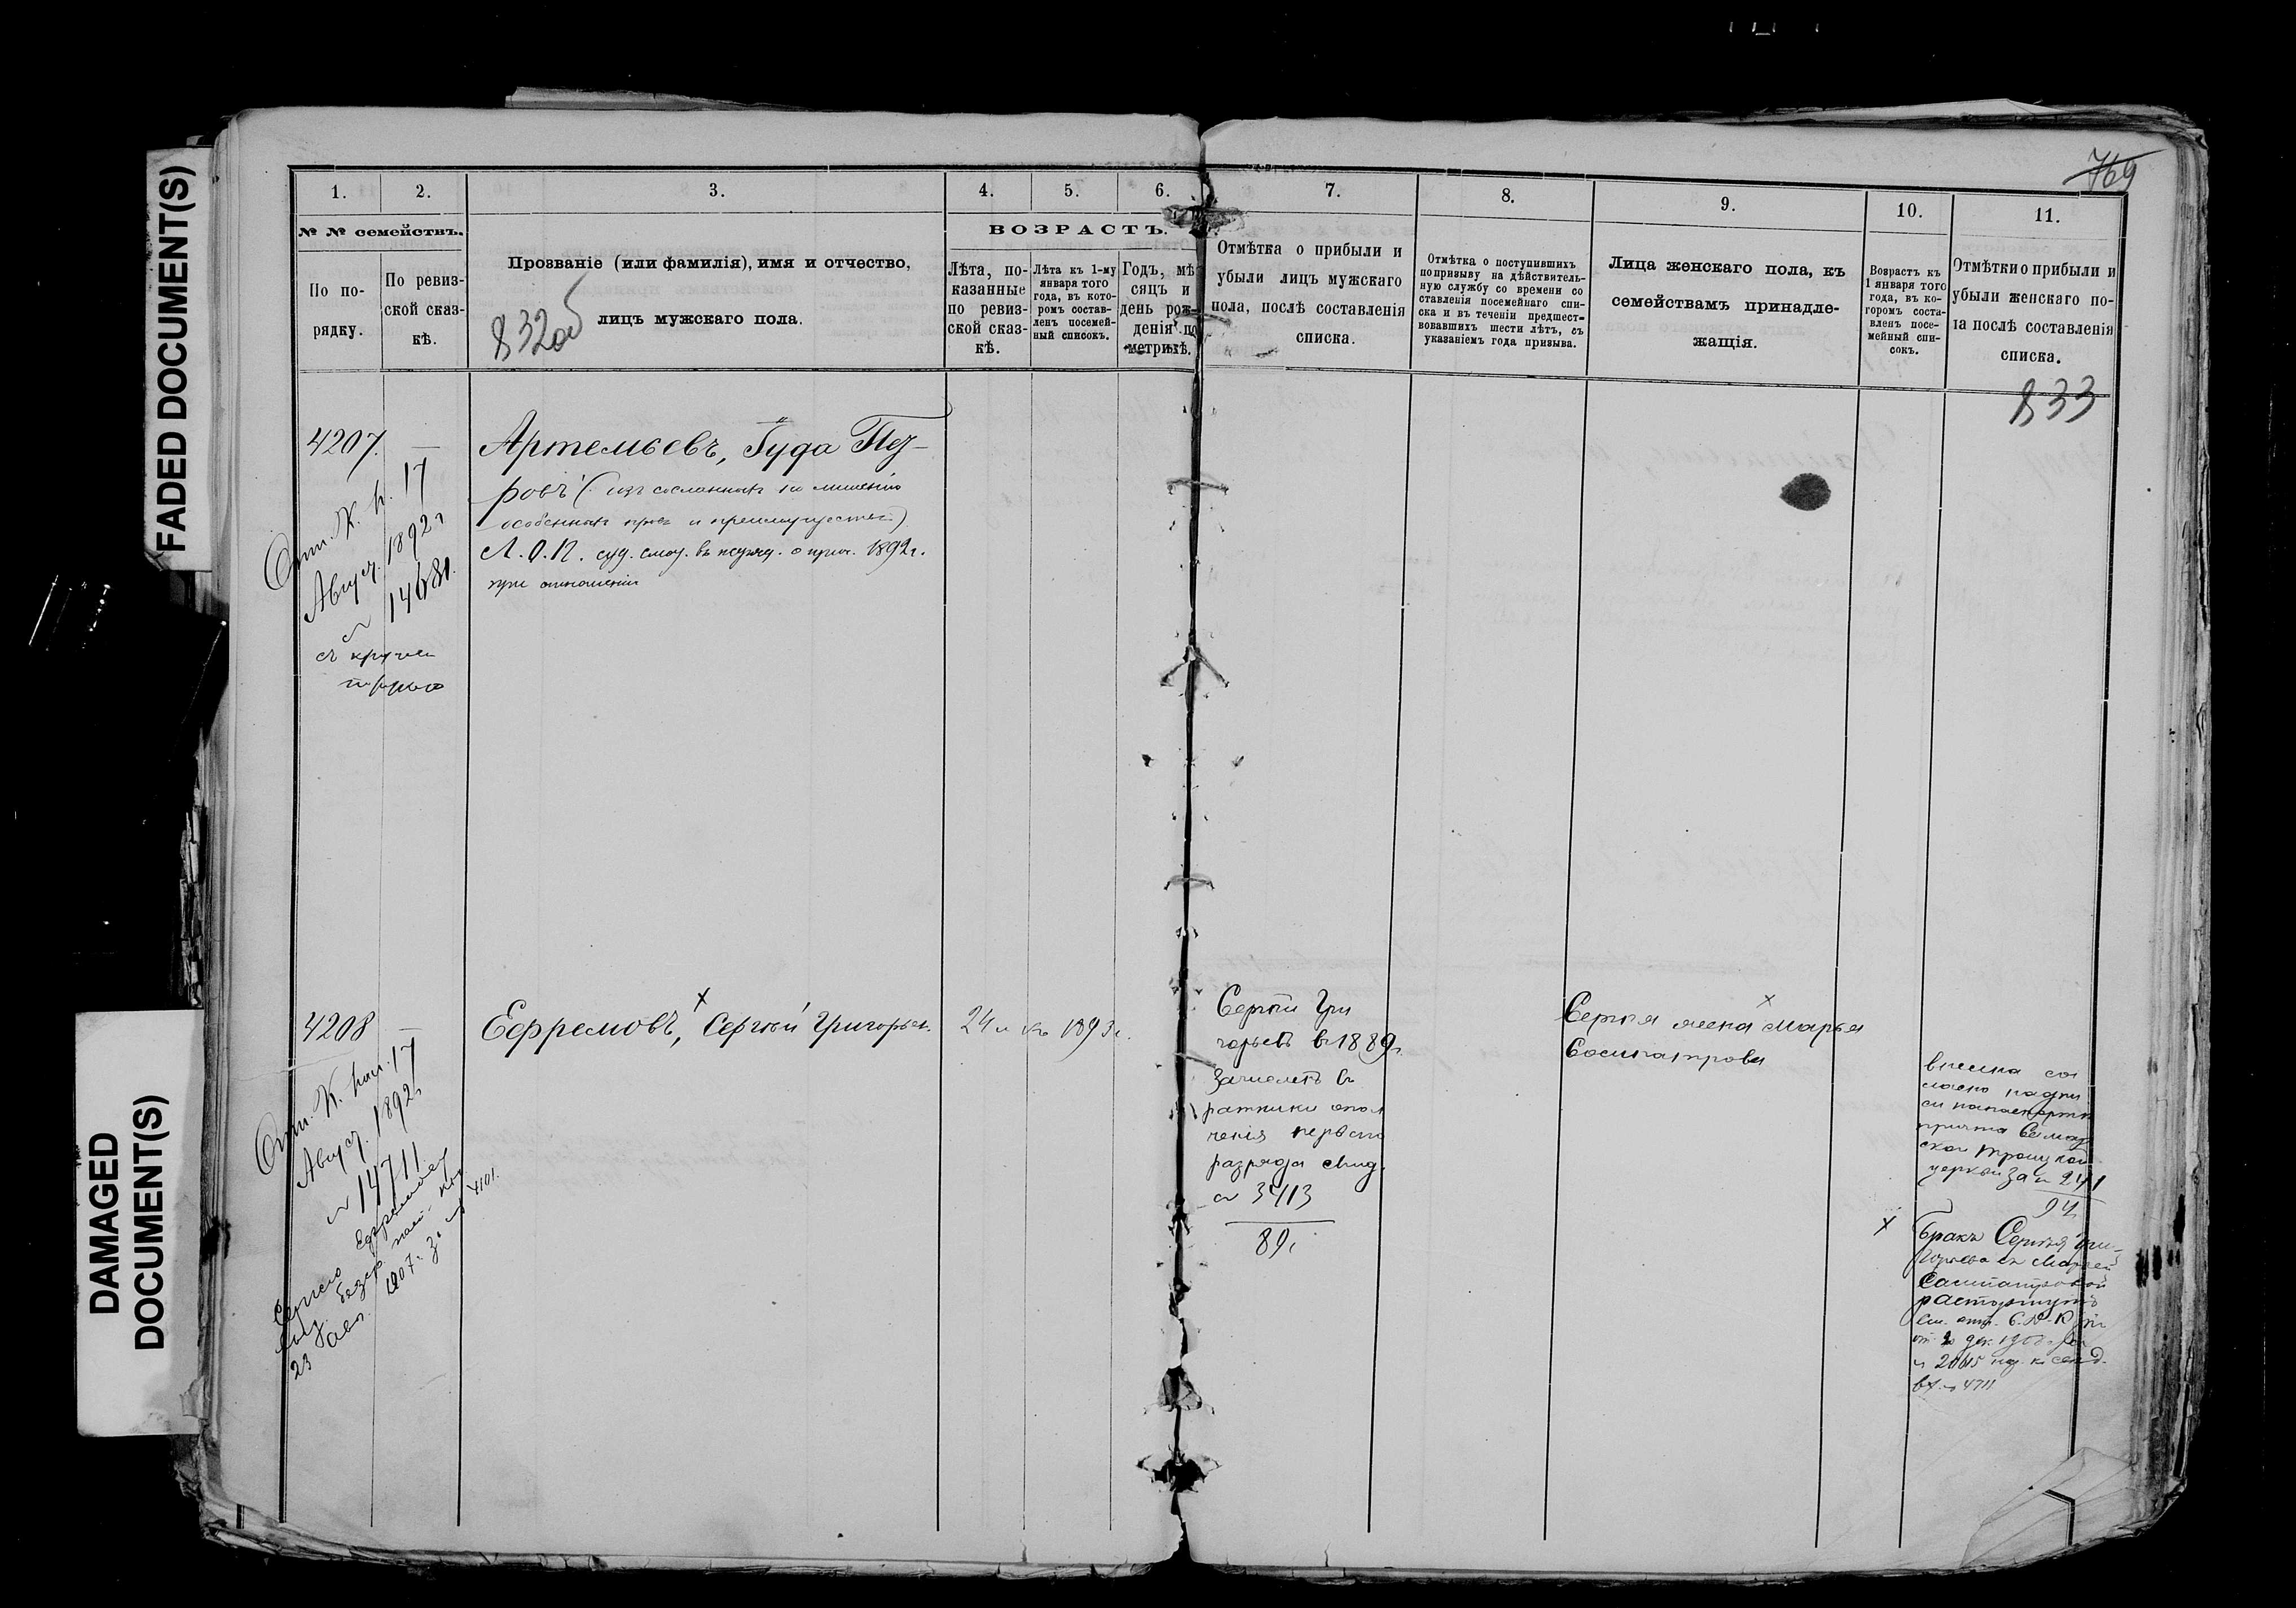 FADED DOCUMENT(S)
DAMAGED
DOCUMENT(S)
769
1.
2.
3.
4.
5.
6.
7.
8.
9.
10.
11.
№ № семействъ.
По по-
рядку.
По ревиз-
ской сказ-
кѣ.
Прозваніе (или фамилія), имя и отчество,
лицъ мужскаго пола.
832об
ВОЗРАСТЪ.
Лѣта, по-
казанные
по ревиз-
ской сказ-
кѣ.
Лѣта къ 1-му
января того
года, въ кото-
ромъ состав-
ленъ посемей-
ный списокъ.
Годъ, мѣ
сяцъ и
день рож-
денія по
метрикѣ.
Отмѣтка о прибыли и
убыли лицъ мужскаго
пола, послѣ составленія
списка.
Отмѣтка о поступившихъ
по призыву на дѣйствитель-
ную службу со времени со
ставленія посемейнаго спи-
ска и въ теченіи предшест-
вовавшихъ шести лѣтъ, съ
указаніемъ года призыва.
Лица женскаго пола, къ
семействамъ принадле-
жащія.
Возрастъ къ
1 января того
года, въ ко-
торомъ соста-
вленъ посе-
мейный спи-
сокъ.
Отмѣтки о прибыли и
убыли женскаго по-
ла послѣ составленія
списка.
833
4207. —
Артемьевъ, Гуда
ровъ (изъ сосланныхъ по лишенію
особенныхъ правъ и преимуществъ)
Л.О.П. суд. 1892г.
при отношеніи
Отн. К. П. 17
Август. 1892г
№ 14681.
4208 —
Ефремовъ, Сергѣй Григорьев.
24 л къ 1893г.
Отн. К. Пал. 17
Август. 1892г
№ 14711
23 Авг. 1907г за № 4101.
Сергѣй Гри
горьевъ въ 1889г.
зачисленъ въ
ратники опол
ченія перваго
разряда свид.
№ 3413
89г
Сергѣя жена Марья
Сосипатрова
внесена со
гласно надпи
си на паспортѣ
причта
ской Троицкой
церкви за № 241
94
Бракъ Сергѣя Гри-
горьева съ Марьей
Сосипатровой
расторгнутъ
№ 20615
вх. № 4711